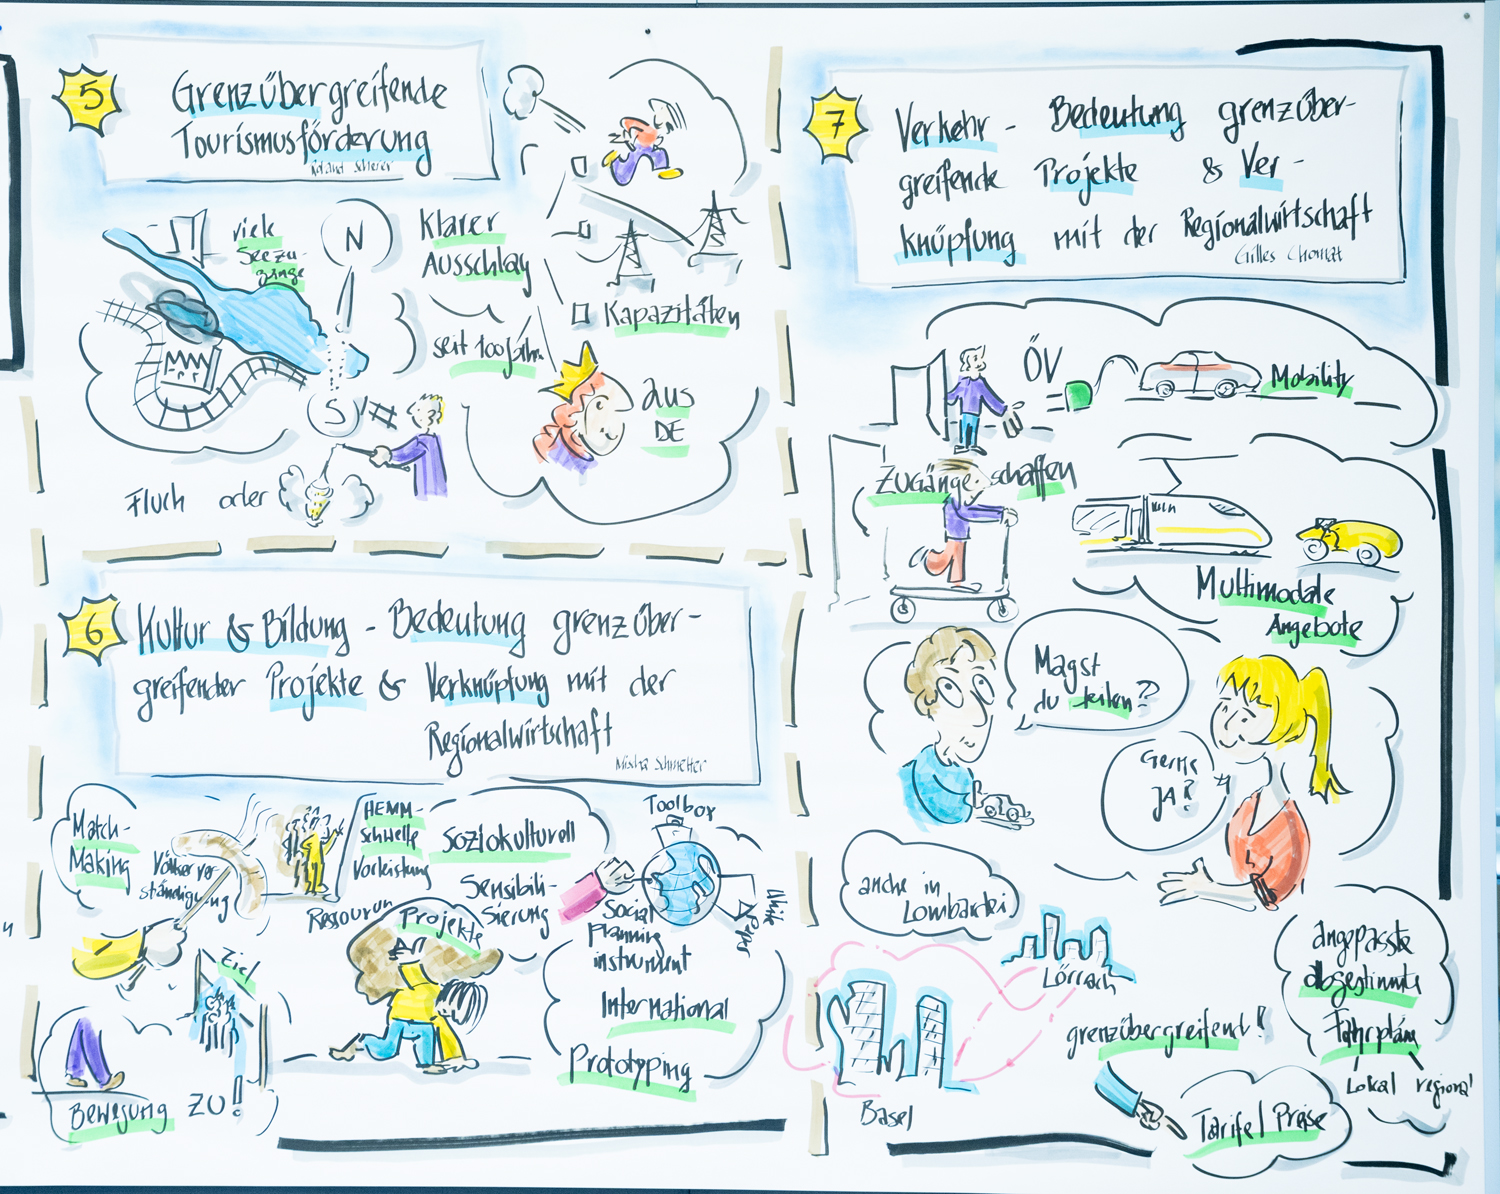 5
Grenzübergreifende
Tourismusförderung
Roland Scherer
viele
Seezu-
gänge
N
S
Klarer
Ausschlag
seit 100 Jahr.
Kapazitäten
aus
DE
Fluch oder
6
Kultur & Bildung - Bedeutung grenzüber-
greifender Projekte & Verknüpfung mit der
Regionalwirtschaft
Match-
Making
Völkerver-
ständigung
HEMM-
schwelle
Vorleistung
Soziokulturell
Sensibili-
sierung
Ressourcen
Projekte
Toolbox
White
Paper
Social
planning
instrument
International
Prototyping
Ziel
Bewegung zu!
7
Verkehr - Bedeutung grenzüber-
greifende Projekte & Ver-
knüpfung mit der Regionalwirtschaft
ÖV
Mobility
Zugänge schaffen
Multimodale
Angebote
Magst
du teilen?
Gerne
JA!
auche in
Lombardei
Lörrach
Basel
grenzübergreifend!
angepasste
abgestimmte
Fahrpläne
Lokal regional
Tarife/Preise